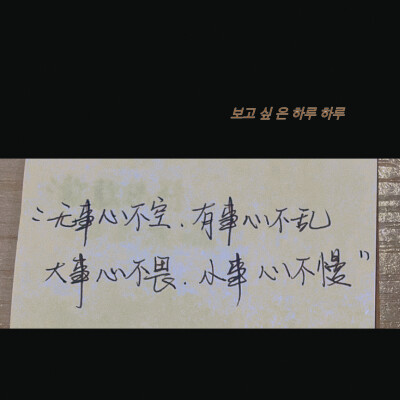 보고 싶 은 하루 하루
“无事心不空.有事心不乱
大事心不畏.小事心不慢”